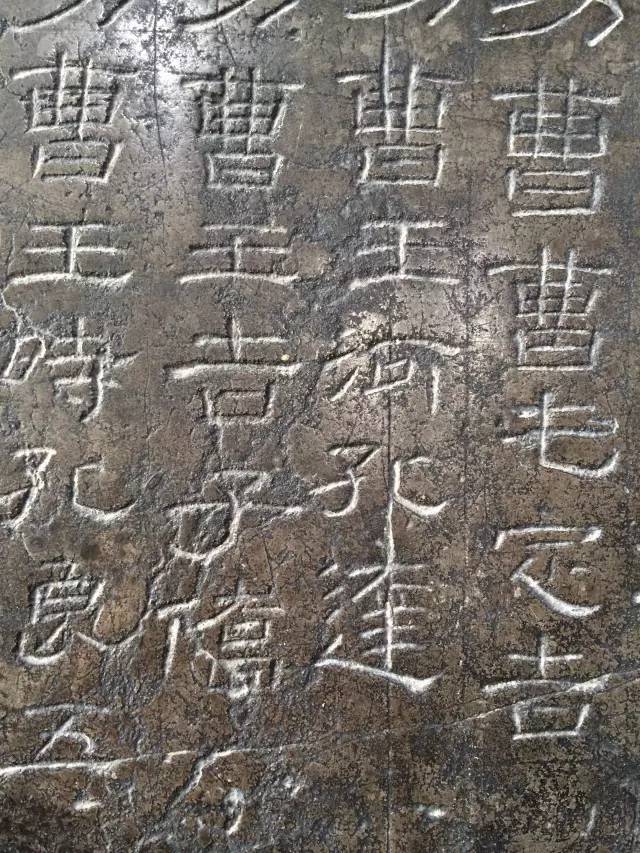 曹曹屯定吉
曹王河孔達
曹王吉子僑
曹王時孔良五